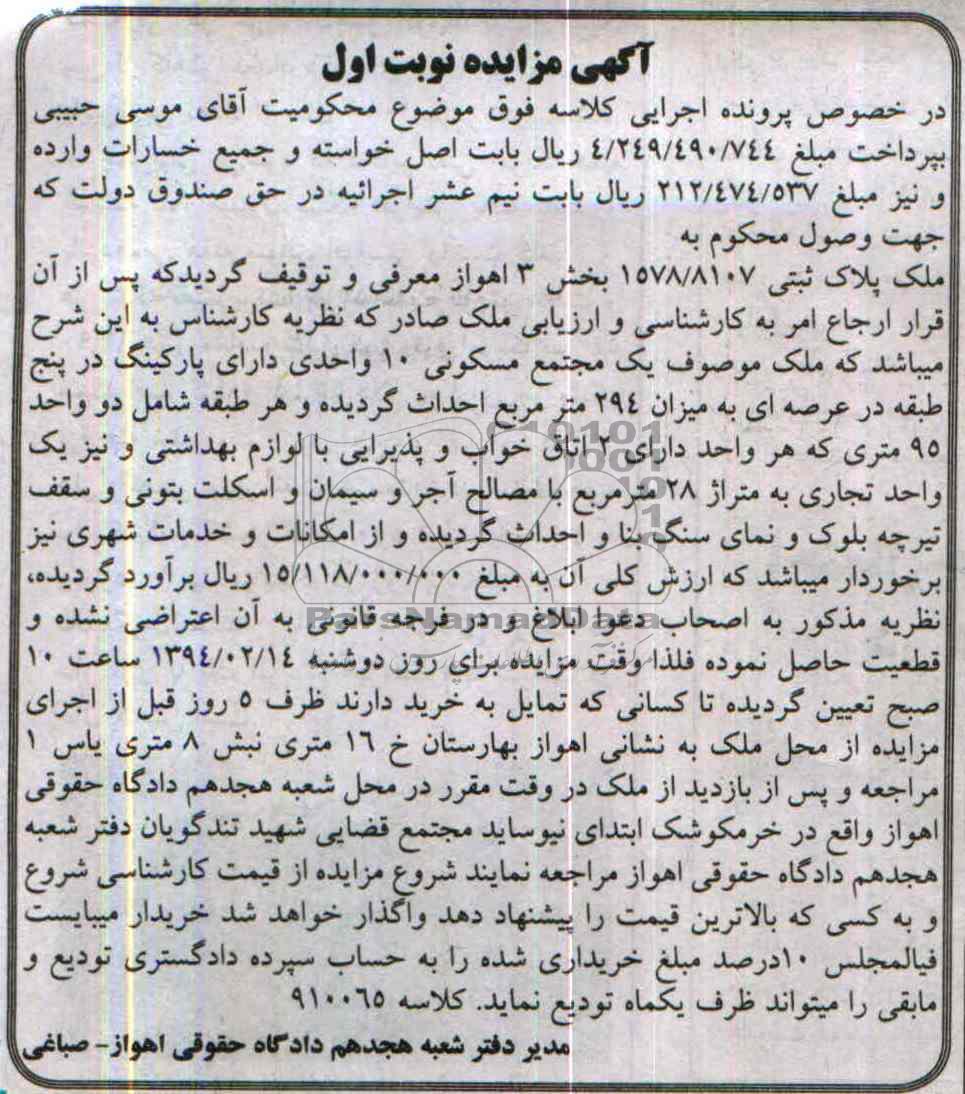 آگهی مزایده نوبت اول
در خصوص پرونده اجرایی کلاسه فوق موضوع محکومیت آقای موسی حبیبی
بپرداخت مبلغ ٤/٢٤٩/٤٩٠/٧٤٤ ریال بابت اصل خواسته و جمیع خسارات وارده
و نیز مبلغ ٢١٢/٤٧٤/٥٣٧ ریال بابت نیم عشر اجرائیه در حق صندوق دولت که
جهت وصول محکوم به
ملک پلاک ثبتی ١٥٧٨/٨١٠٧ بخش ٣ اهواز معرفی و توقیف گردیدکه پس از آن
قرار ارجاع امر به کارشناسی و ارزیابی ملک صادر که نظریه کارشناس به این شرح
میباشد که ملک موصوف یک مجتمع مسکونی ١٠ واحدی دارای پارکینگ در پنج
طبقه در عرصه ای به میزان ٢٩٤ متر مربع احداث گردیده و هر طبقه شامل دو واحد
٩٥ متری که هر واحد دارای ٢ اتاق خواب و پذیرایی با لوازم بهداشتی و نیز یک
واحد تجاری به متراژ ٢٨ مترمربع با مصالح آجر و سیمان و اسکلت بتونی و سقف
تیرچه بلوک و نمای سنگ بنا و احداث گردیده و از امکانات و خدمات شهری نیز
برخوردار میباشد که ارزش کلی آن به مبلغ ١٥/١١٨/٠٠٠/٠٠٠ ریال برآورد گردیده،
نظریه مذکور به اصحاب دعوا ابلاغ و در فرجه قانونی به آن اعتراضی نشده و
قطعیت حاصل نموده فلذا وقت مزایده برای روز دوشنبه ١٣٩٤/٠٢/١٤ ساعت ١٠
صبح تعیین گردیده تا کسانی که تمایل به خرید دارند ظرف ٥ روز قبل از اجرای
مزایده از محل ملک به نشانی اهواز بهارستان خ ١٦ متری نبش ٨ متری یاس ١
مراجعه و پس از بازدید از ملک در وقت مقرر در محل شعبه هجدهم دادگاه حقوقی
اهواز واقع در خرمکوشک ابتدای نیوساید مجتمع قضایی شهید تندگویان دفتر شعبه
هجدهم دادگاه حقوقی اهواز مراجعه نمایند شروع مزایده از قیمت کارشناسی شروع
و به کسی که بالاترین قیمت را پیشنهاد دهد واگذار خواهد شد خریدار میبایست
فیالمجلس ١٠درصد مبلغ خریداری شده را به حساب سپرده دادگستری تودیع و
مابقی را میتواند ظرف یکماه تودیع نماید. کلاسه ٩١٠٠٦٥
مدیر دفتر شعبه هجدهم دادگاه حقوقی اهواز- صباغی
ParsNamadData